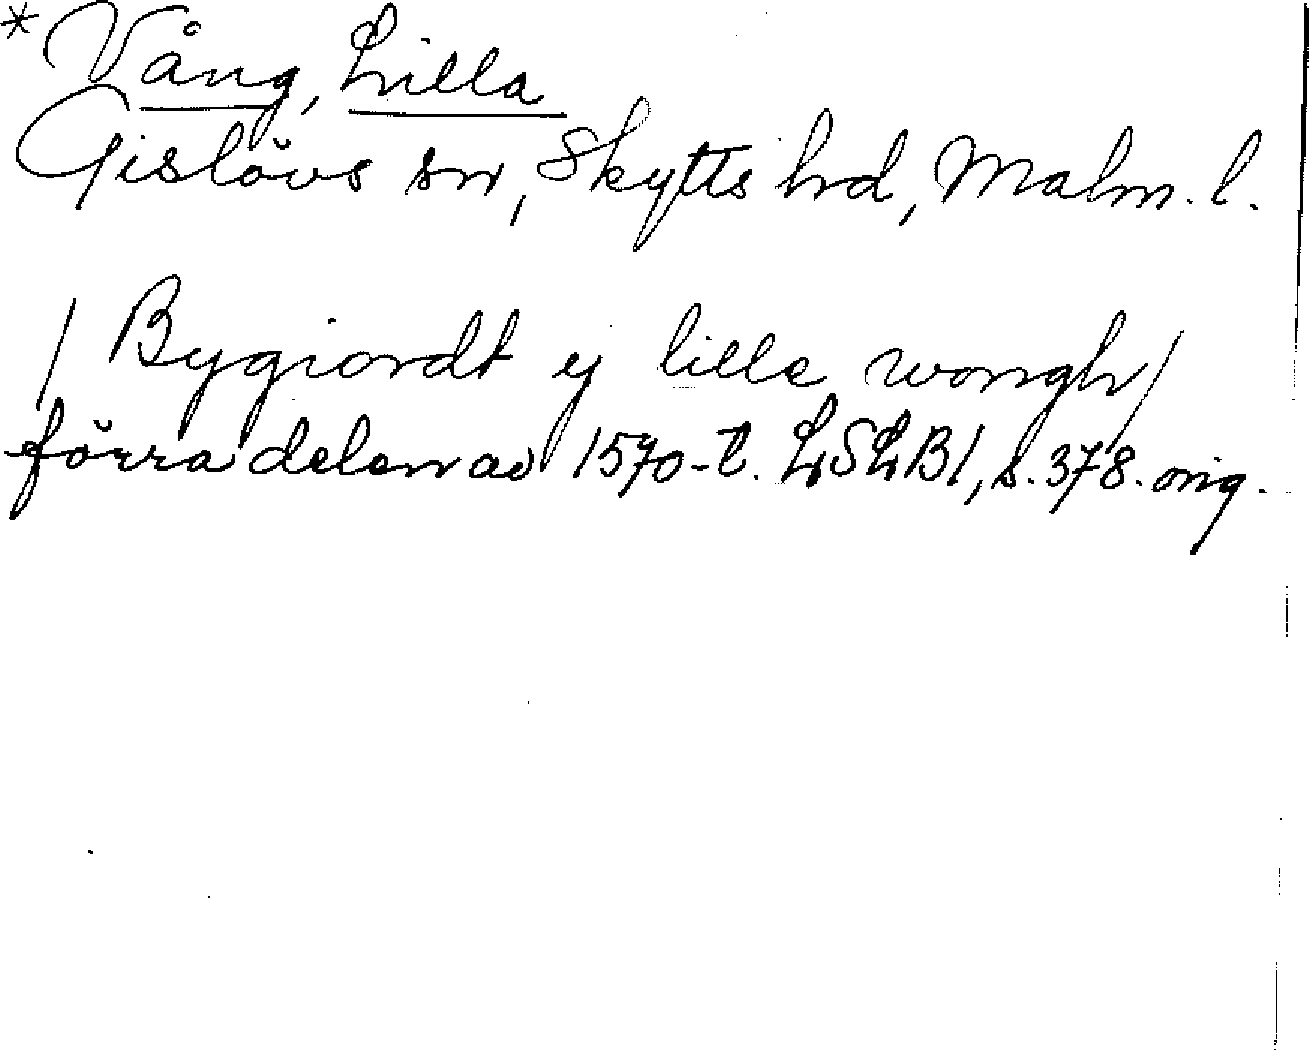 * Vång, Lilla
Gislövs sn, Skytts hd, Malm. l.
/ Bygiordt y lille wongh /
förra delen av 1570-t. LSLB1, s. 378. orig.